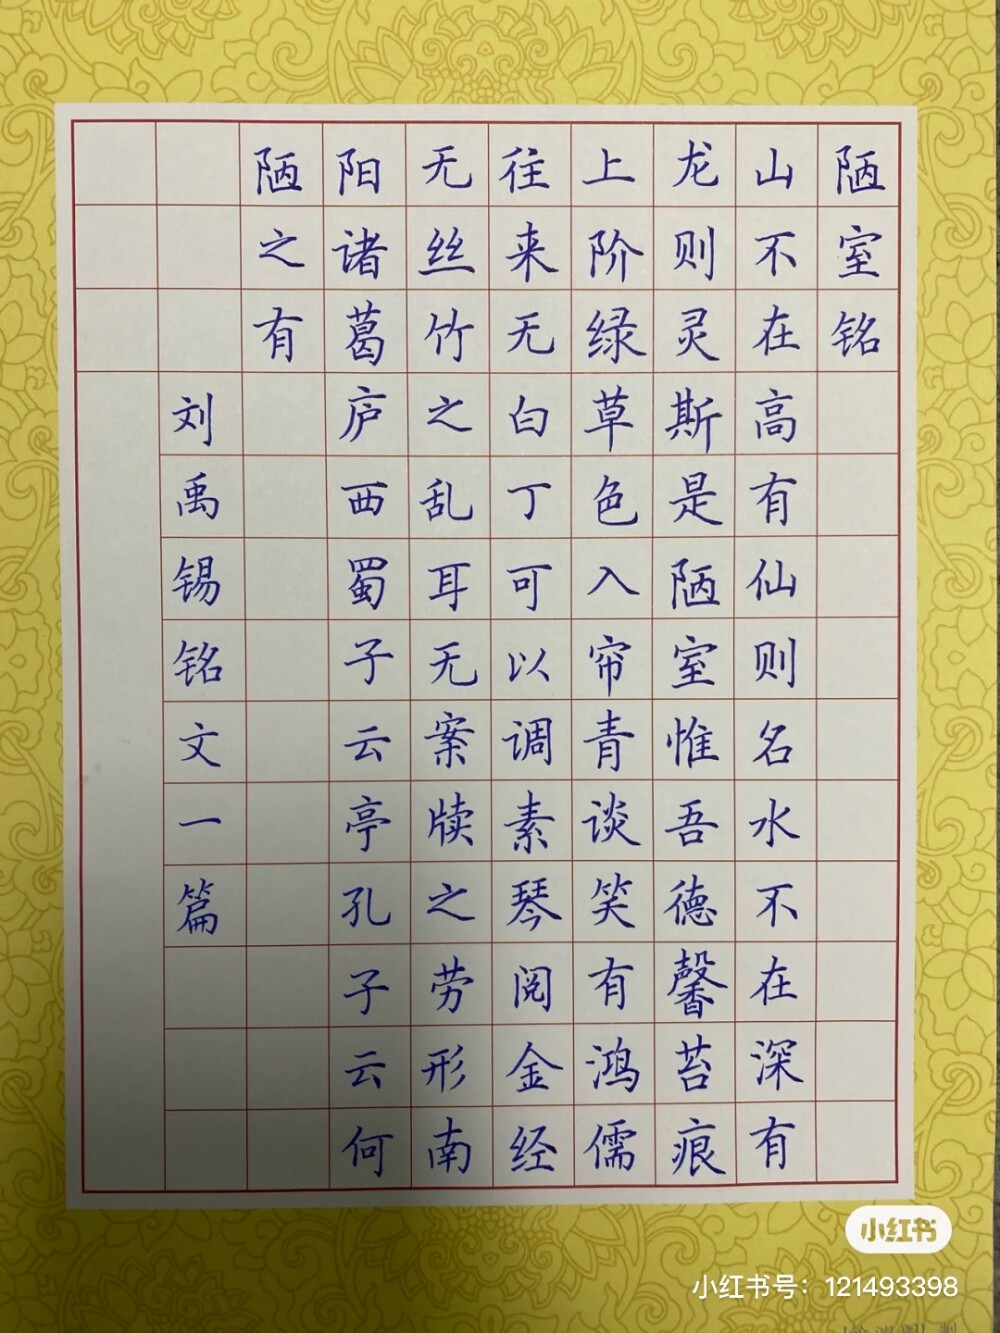 陋室铭
山不在高有仙则名水不在深有
龙则灵斯是陋室惟吾德馨苔痕
上阶绿草色入帘青谈笑有鸿儒
往来无白丁可以调素琴阅金经
无丝竹之乱耳无案牍之劳形南
阳诸葛庐西蜀子云亭孔子云何
陋之有
刘禹锡铭文一篇
小红书
小红书号：121493398